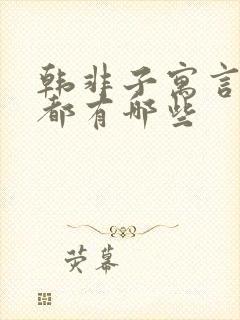 韩非子寓言
都有哪些
荧幕